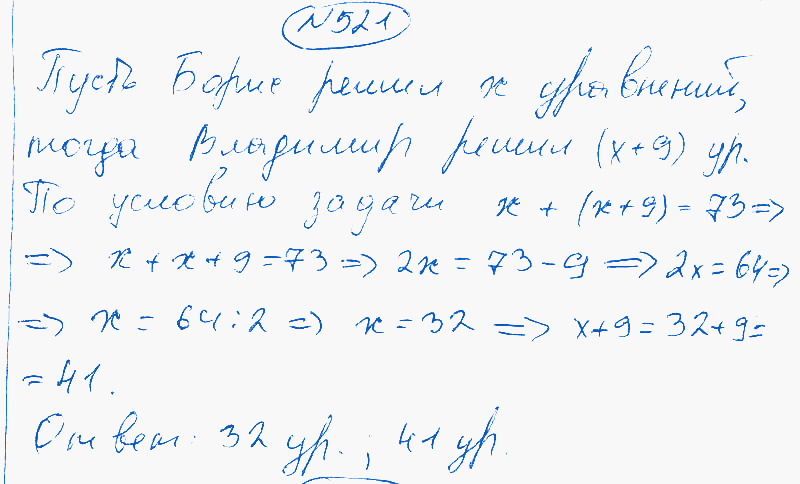 N521
Пусть Борис решил x уравнений,
тогда Владимир решил (x+9) ур.
По условию задачи x + (x+9) = 73 =>
=> x + x + 9 = 73 => 2x = 73 - 9 => 2x = 64 =>
=> x = 64 : 2 => x = 32 => x+9 = 32+9 =
= 41.
Ответ: 32 ур.; 41 ур.